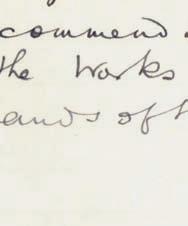 commend.
the works
ands of t